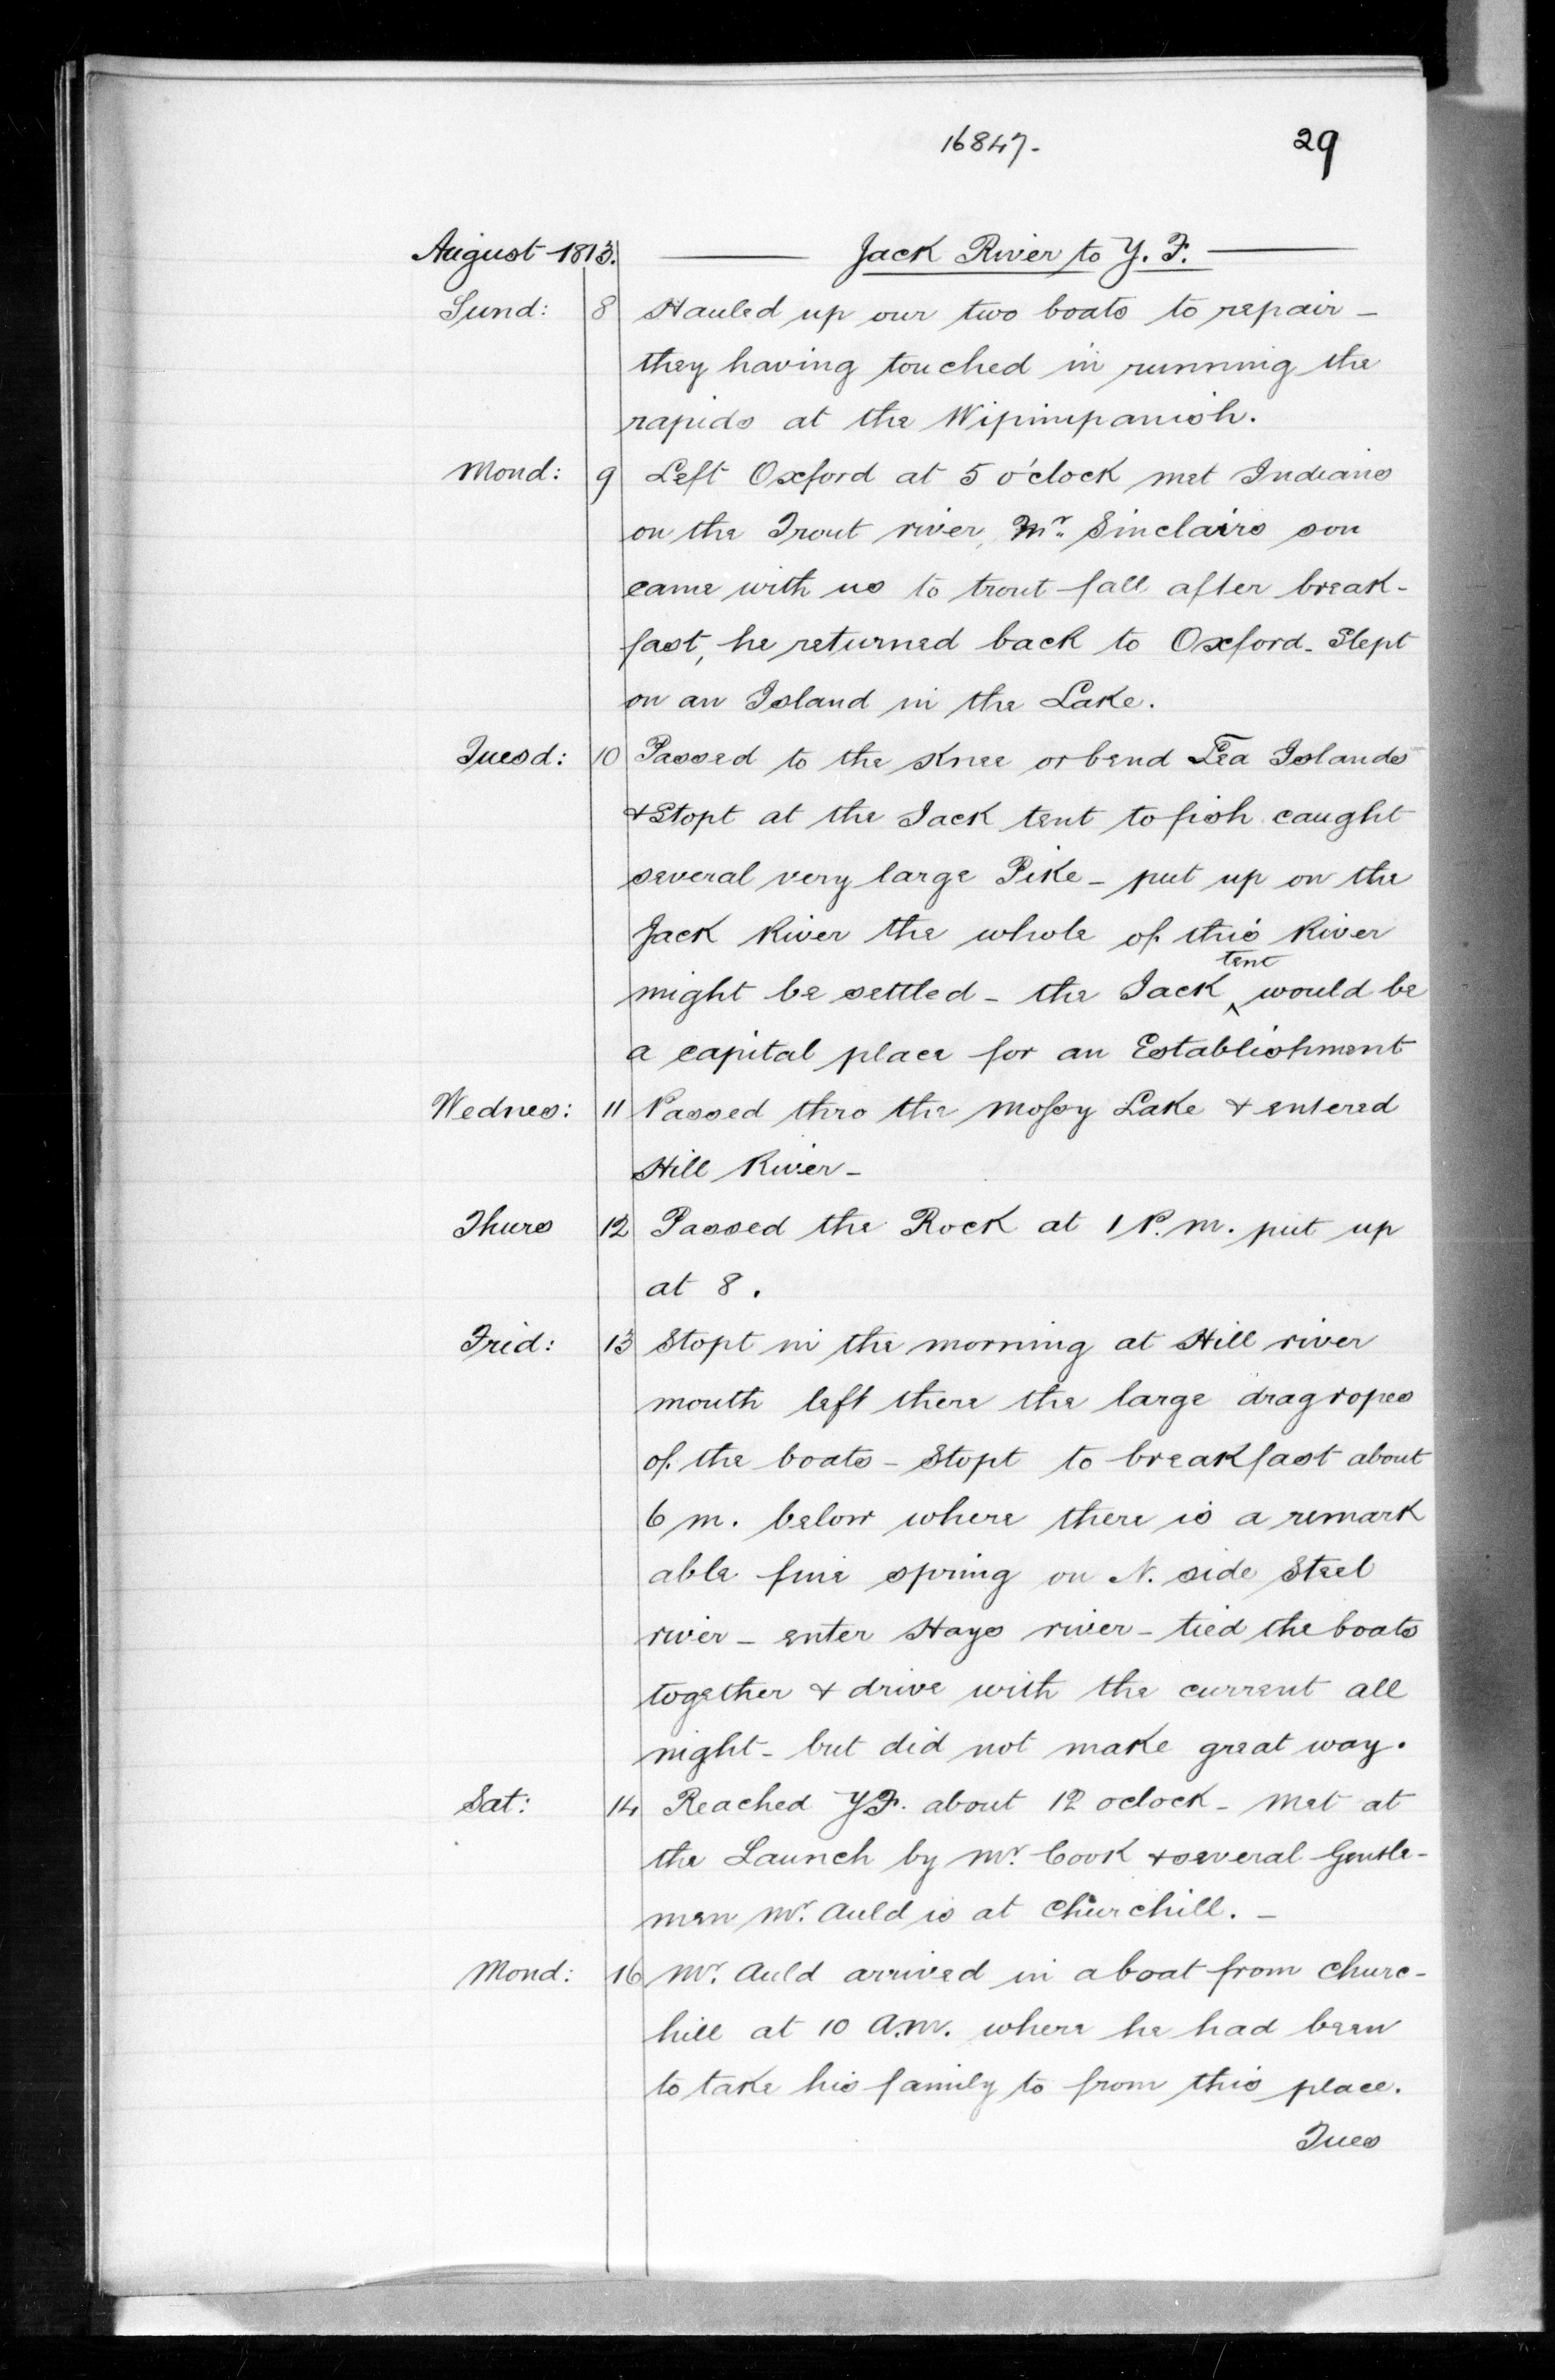 16847- 29
August 1813. Jack River to Y. F.
Sund: 8 Hauled up our two boats to repair -
they having touched in running the
rapids at the Wipinipanish.
Mond: 9 Left Oxford at 5 o'clock met Indians
on the Trout river, Mr. Sinclairs son
came with us to trout fall after break-
fast, he returned back to Oxford. Slept
on an Island in the Lake.
Tuesd: 10 Passed to the Knee or bend Lea Islands
& Stopt at the Jack tent to fish caught
several very large Pike - put up on the
Jack River the whole of this River
might be settled - the Jack tent would be
a capital place for an Establishment
Wednes: 11 Passed thro the Mossy Lake & entered
Hill River -
Thurs 12 Passed the Rock at 1 P.M. put up
at 8.
Frid: 13 Stopt in the morning at Hill river
mouth left there the large dragropes
of the boats - Stopt to breakfast about
6 m. below where there is a remark
able fine spring on N. side Steel
river - enter Hays river - tied the boats
together & drive with the current all
night - but did not make great way.
Sat: 14 Reached YF. about 12 oclock - Met at
the Launch by Mr. Cook & several Gentle-
men Mr. Auld is at Churchill. -
Mond: 16 Mr. Auld arrived in a boat from Churc-
hill at 10 A.M. where he had been
to take his family to from this place.
Tues